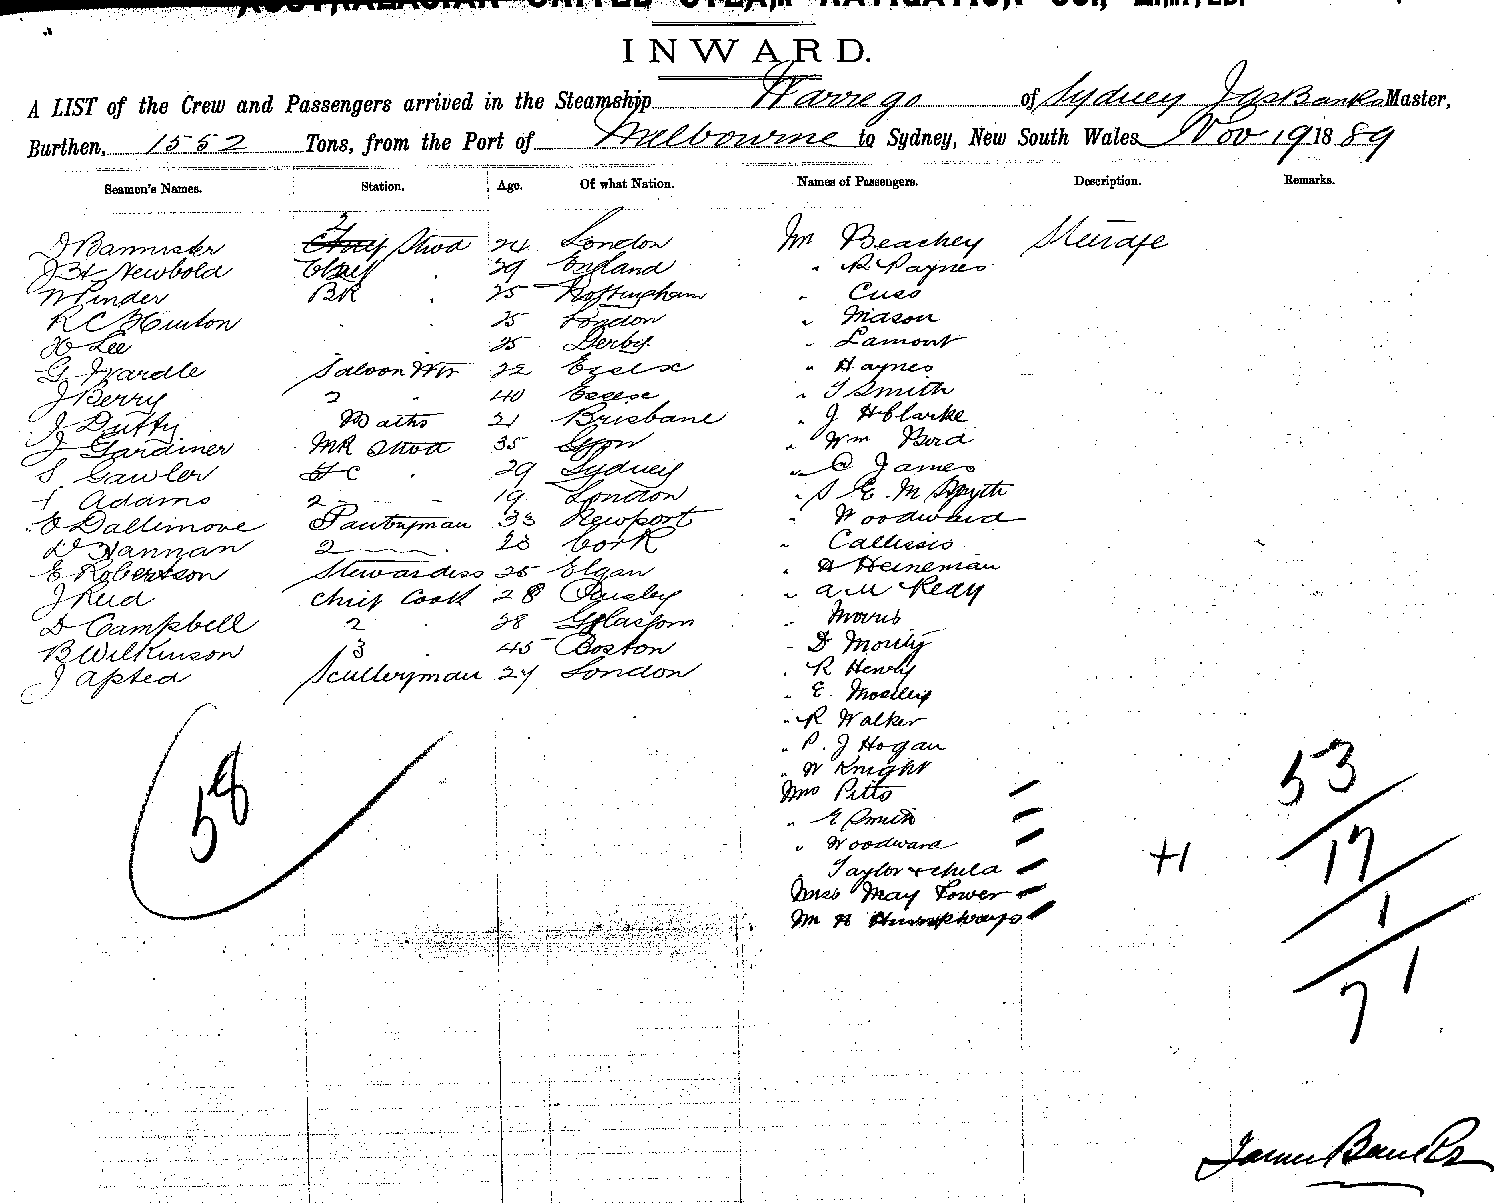 AUSTRALASIAN UNITED STEAM NAVIGATION CO., LIMITED.
INWARD.
A LIST of the Crew and Passengers arrived in the Steamship Warrego of Sydney Jas Banks Master,
Burthen, 1552 Tons, from the Port of Melbourne to Sydney, New South Wales Nov 19 1889
Seamen's Names. Station. Age. Of what Nation. Names of Passengers. Description. Remarks.
J Bannister 2 Stwd 24 London Mr Beachey Steirage
J H Newbold 29 England " R Paynes
W Pinder BR " 25 Nottingham " Cuss
R C Hinton " 25 London " Mason
H Lee " 25 Derby " Lamont
G Wardle Saloon Wtr 22 Essex " Haynes
J Berry 2 " 40 Essex " T Smith
J Duffy 21 Brisbane " J H Clarke
J Gardiner MR Stwd 35 " Wm Bird
S. Gawler " 29 Sydney " C James
Adams 2 19 London " S E M
Dallimore Pantryman 33 Newport " Woodward
Hannan 2 23 Cork "
E Robertson Stewardess 25 Elgan " Heineman
J Reid Chief Cook 28 Paisley "
D Campbell 2 " 28 Glasgow " Morris
B Wilkinson 3 " 45 Boston - D
J Apted Sculleryman 27 London " R Henry
" E.
" R Walker
" P. J Hogan
" W Knight
Mrs Pitts
" E Smith
" Woodward
" Taylor + child
Miss May Tower
Mr H
58
+1
53
17
1
71
James Banks